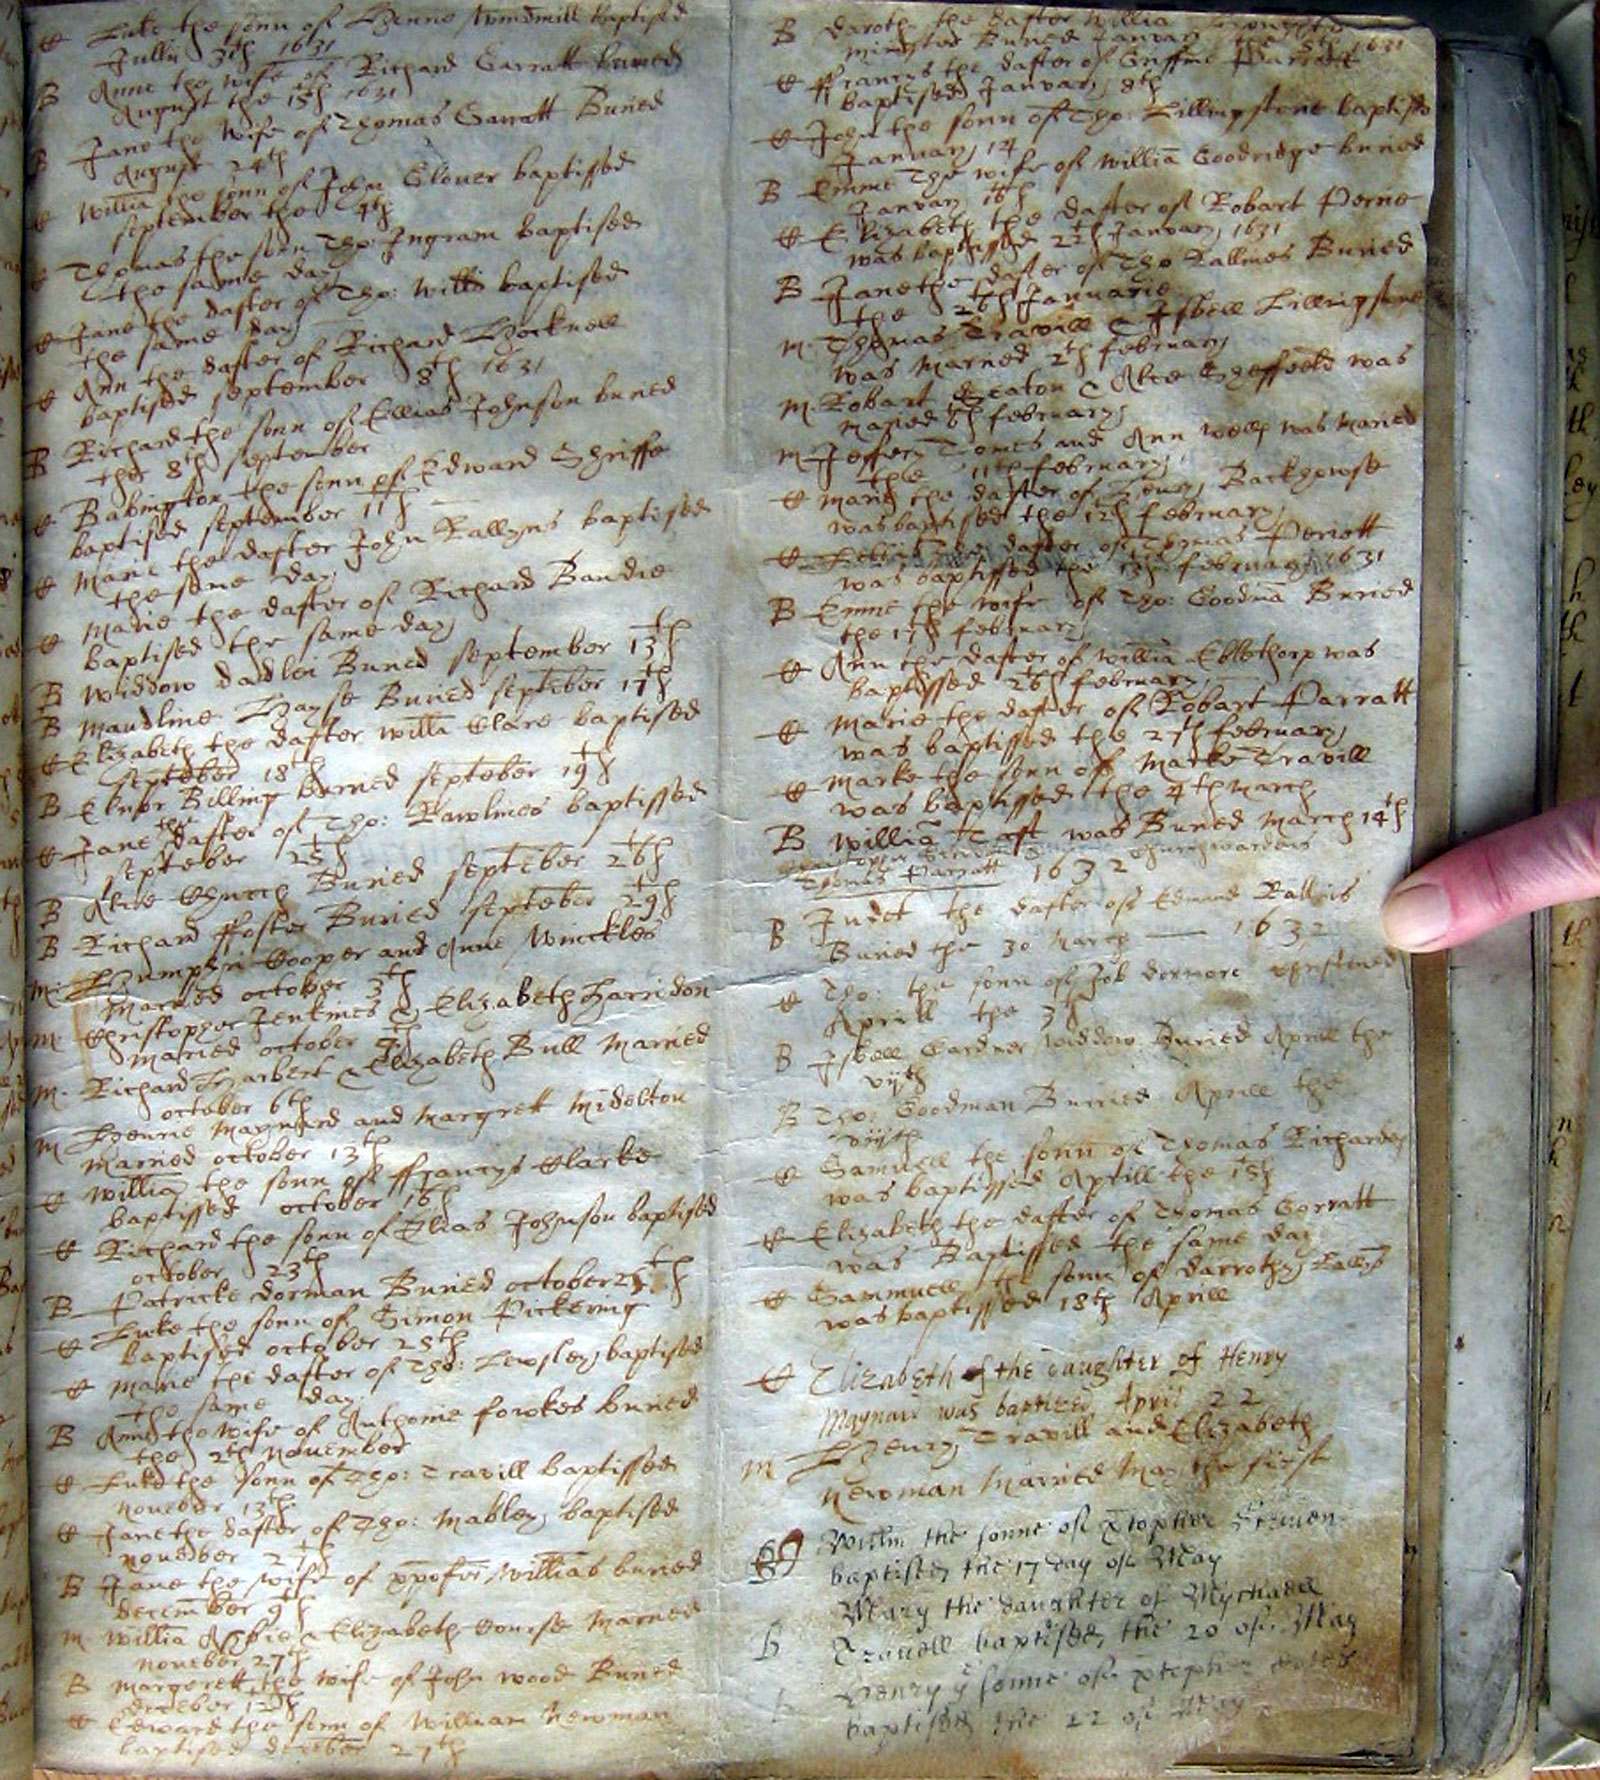 C Luke the sonn of Henne Windmill baptised
Jullii 3th 1631
B Anne the wife of Richard Garratt buried
August the 15th 1631
B Jane the wife of Thomas Garratt Buried
August 24th
C Willia the sonn of John Glouer baptissed
september the 4th
C Thomas the sonn Tho: Ingram baptised
the same day
C Jane the dafter of Tho: Wills baptised
the same day
C Ann the dafter of Richard Hocknell
baptised september 8th 1631
B Richard the sonn of Ellias Johnson buried
the 8th september
C Babington the sonn of Edward Shriffe
baptised september 11th
C Marie the dafter John Rallyns baptised
the same day
C Marie the dafter of Richard Bandie
baptised the same day
B Widdow dadlei Buried september 13th
B Maudline Hayse Buried september 17th
C Elizabeth the dafter willia Clare baptised
september 18th
B Elnor Billing buried september 19th
C Jane the dafter of Tho: Rawlines baptissed
september 25th
B Alice Church Buried september 26th
B Richard ffoster Buried september 29th
M: Humphri Cooper and Anne Winckles
Married october 3th
M Christopher Jenkines & Elizabeth Harridon
maried october
M. Richard Harbert & Elizabeth Bull Married
october 6th
M Henrie Maynard and Margrett Midelton
Married october 13th
C Willia the sonn of ffrancys Clarke
baptissed october 16th
C Richard the sonn of Elias Johnson baptised
october 23th
B Patricke dorman Buried october
C Luke the sonn of Simon Pickering
baptised october 25th
C Marie the dafter of Tho: Lewsley baptised
the same day
B Anne the wife of Anthonie fowkes buried
the 2th November
C Luke the sonn of Tho: Travill baptissed
november 13th
C Jane the dafter of Tho: Mabley baptised
november 27th
B Jane the wife of xpofer Willias buried
december 9th
M. Willia & Elizabeth Course Married
november 27th
B Margerett the wife of John wood Buried
december 12th
C Edward the sonn of William Newman
baptised december 27th
B daroth the dafter Willia
minster Buried January the 5th 1631
C ffrancys the dafter of Griffine Parratt
baptised January 8th
C John the sonn of Tho: Lillingstone baptised
January 14
B Emme the wife of Willia Goodridge buried
January 16th
C Elizabeth the dafter of Robart Perrie
was baptissed 22th January 1631
B Jane the dafter of Tho Rallines Buried
the 26th Januarie
M. Thomas Travill & Isbell Lillingstone
was Married 2th february
M. Robart Heaton & Alce Sheffeeld was
maried 6th february
M Jeffery Tomes and Ann was Maried
the 11th february
C Marie the dafter of Henry Backhowse
was baptised the 12th february
C the dafter of Thomas Periott
was baptissed the 13th february 1631
B Emme the wife of Tho: Goodma Buried
the 17th february
C Ann the dafter of Willia Eblethorp was
baptissed 26th february
C Marie the dafter of Robart Parratt
was baptissed the 27th february
C Marke the sonn of Marke Travill
was baptissed the 4th March
B Willia Taft was Buried March 14th
Churchwardens
Thomas Parratt 1632
B Judet the dafter of Edmund Rallins
Buried the 30 March 1632
C Tho: the sonn of Job dormore
Aprill the 3th
B Isbell Gardner widdow Buried Aprill the
vijth
B Tho: Goodman Burried Aprill the
viijth
C Samuell the sonn of Thomas Richardes
was baptissed Aprill the 15th
C Elizabeth the dafter of Thomas Gorratt
was Baptissed the same day
C Sammuell the sonn of darrothy Rallins
was baptissed 18th Aprill
C Elizabeth the daughter of Henry
Maynard was baptized April 22
M Henry Travill and Elizabeth
Newman Married May the first
Willm the sonne of xtopher
baptised the 17 day of May
Mary the daughter of Mychaell
B Travell baptised the 20 of May
Henry ye sonne of xtopher
baptised the 22 of May